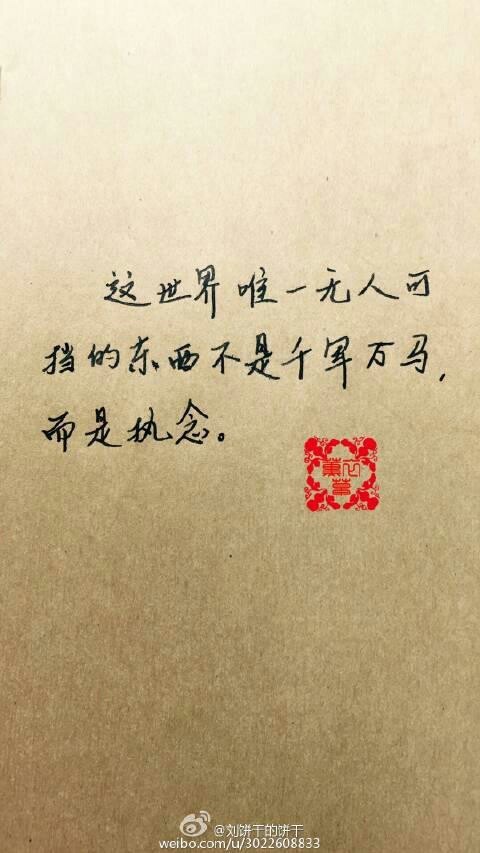 这世界唯一无人可
挡的东西不是千军万马，
而是执念。
@刘饼干的饼干
weibo.com/u/3022608833